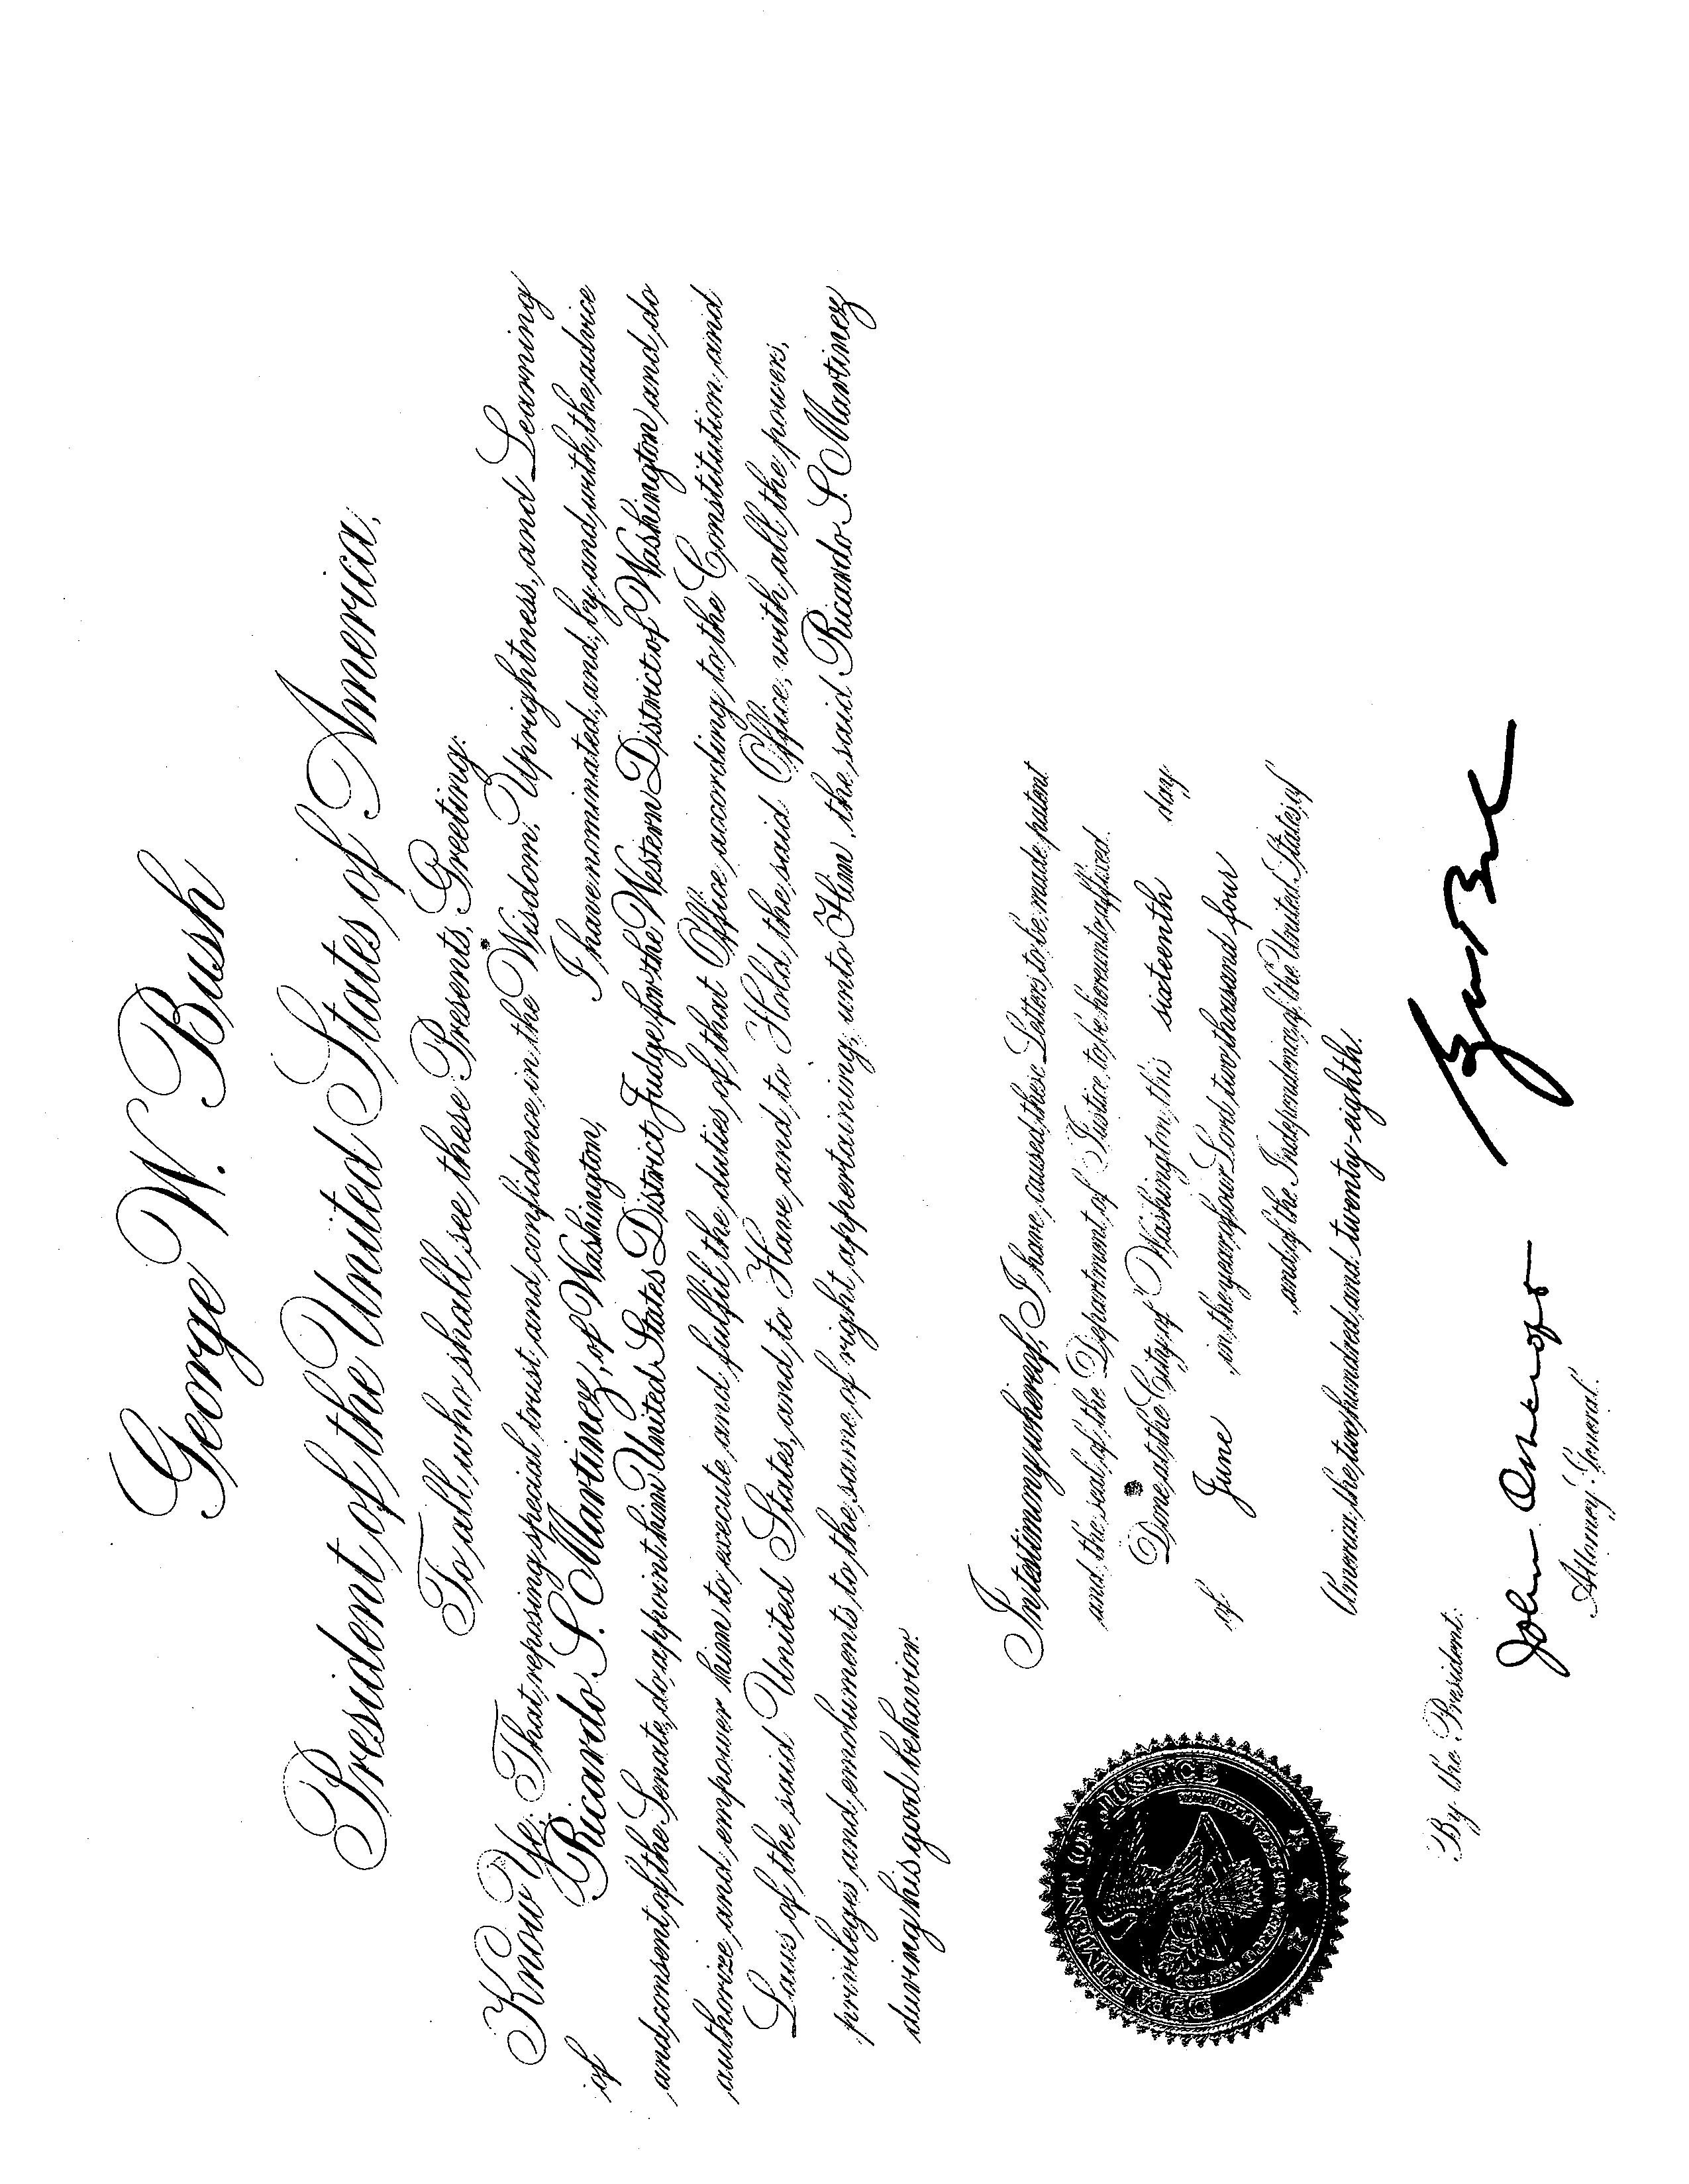 George W. Bush
President of the United States of America,
To all who shall see these Presents, Greeting:
Know Ye; That reposing special trust and confidence in the Wisdom, Uprightness, and Learning
of Ricardo S. Martinez, of Washington, I have nominated, and, by and with the advice
and consent of the Senate, do appoint him United States District Judge for the Western District of Washington and do
authorize and empower him to execute and fulfil the duties of that Office according to the Constitution and
Laws of the said United States, and to Have and to Hold the said Office, with all the powers,
privileges and emoluments to the same of right appertaining, unto Him the said Ricardo S. Martinez
during his good behavior.
In testimony whereof, I have caused these Letters to be made patent
and the seal of the Department of Justice to be hereunto affixed.
Done at the City of Washington this sixteenth day
of June in the year of our Lord two thousand four
and of the Independence of the United States of
America the two hundred and twenty-eighth.
DEPARTMENT OF JUSTICE
By the President:
John Ashcroft
Attorney General.